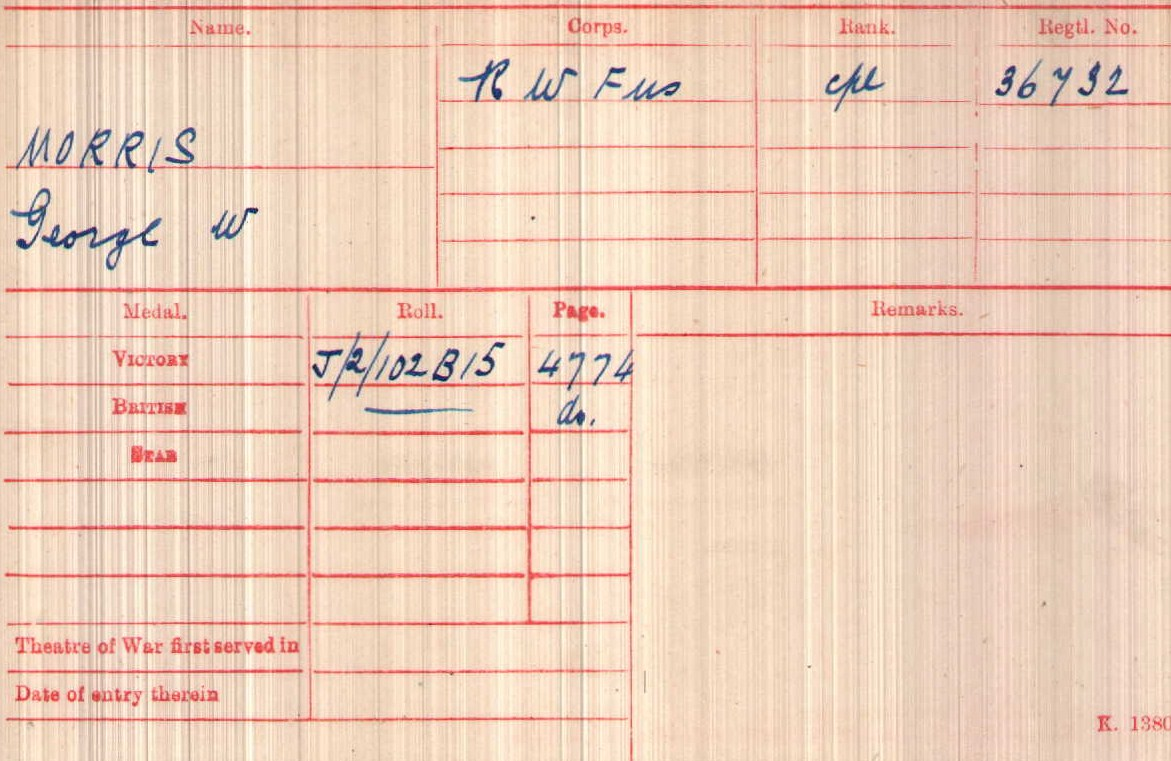 Name. Corps. Rank. Regtl. No.
R W Fus cpl 36732
MORRIS
George W
Medal. Roll. Page. Remarks.
VICTORY J/2/102B15 4774
BRITISH do.
STAR
Theatre of War first served in
Date of entry therein
K. 1380